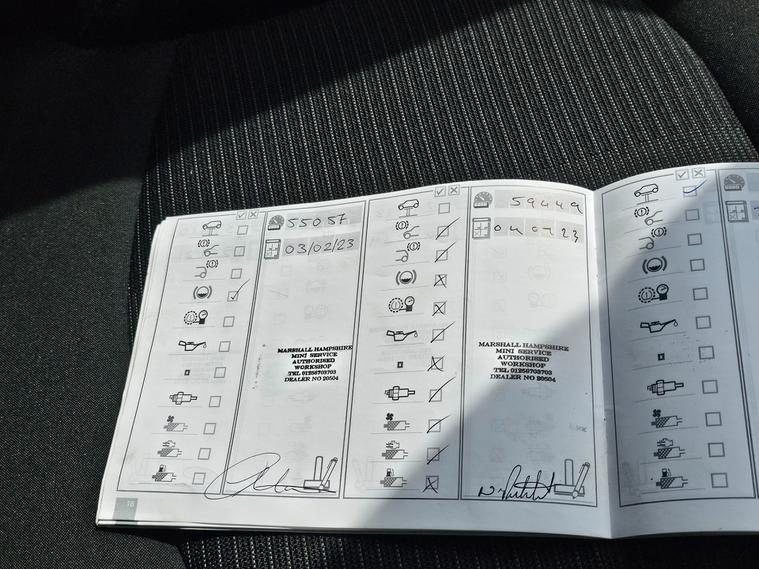 55057
03/02/23
MARSHALL HAMPSHIRE
MINI SERVICE
AUTHORISED
WORKSHOP
TEL 01256703703
DEALER NO 20504
18
59449
04 07 23
MARSHALL HAMPSHIRE
MINI SERVICE
AUTHORISED
WORKSHOP
TEL 01256703703
DEALER NO 20504